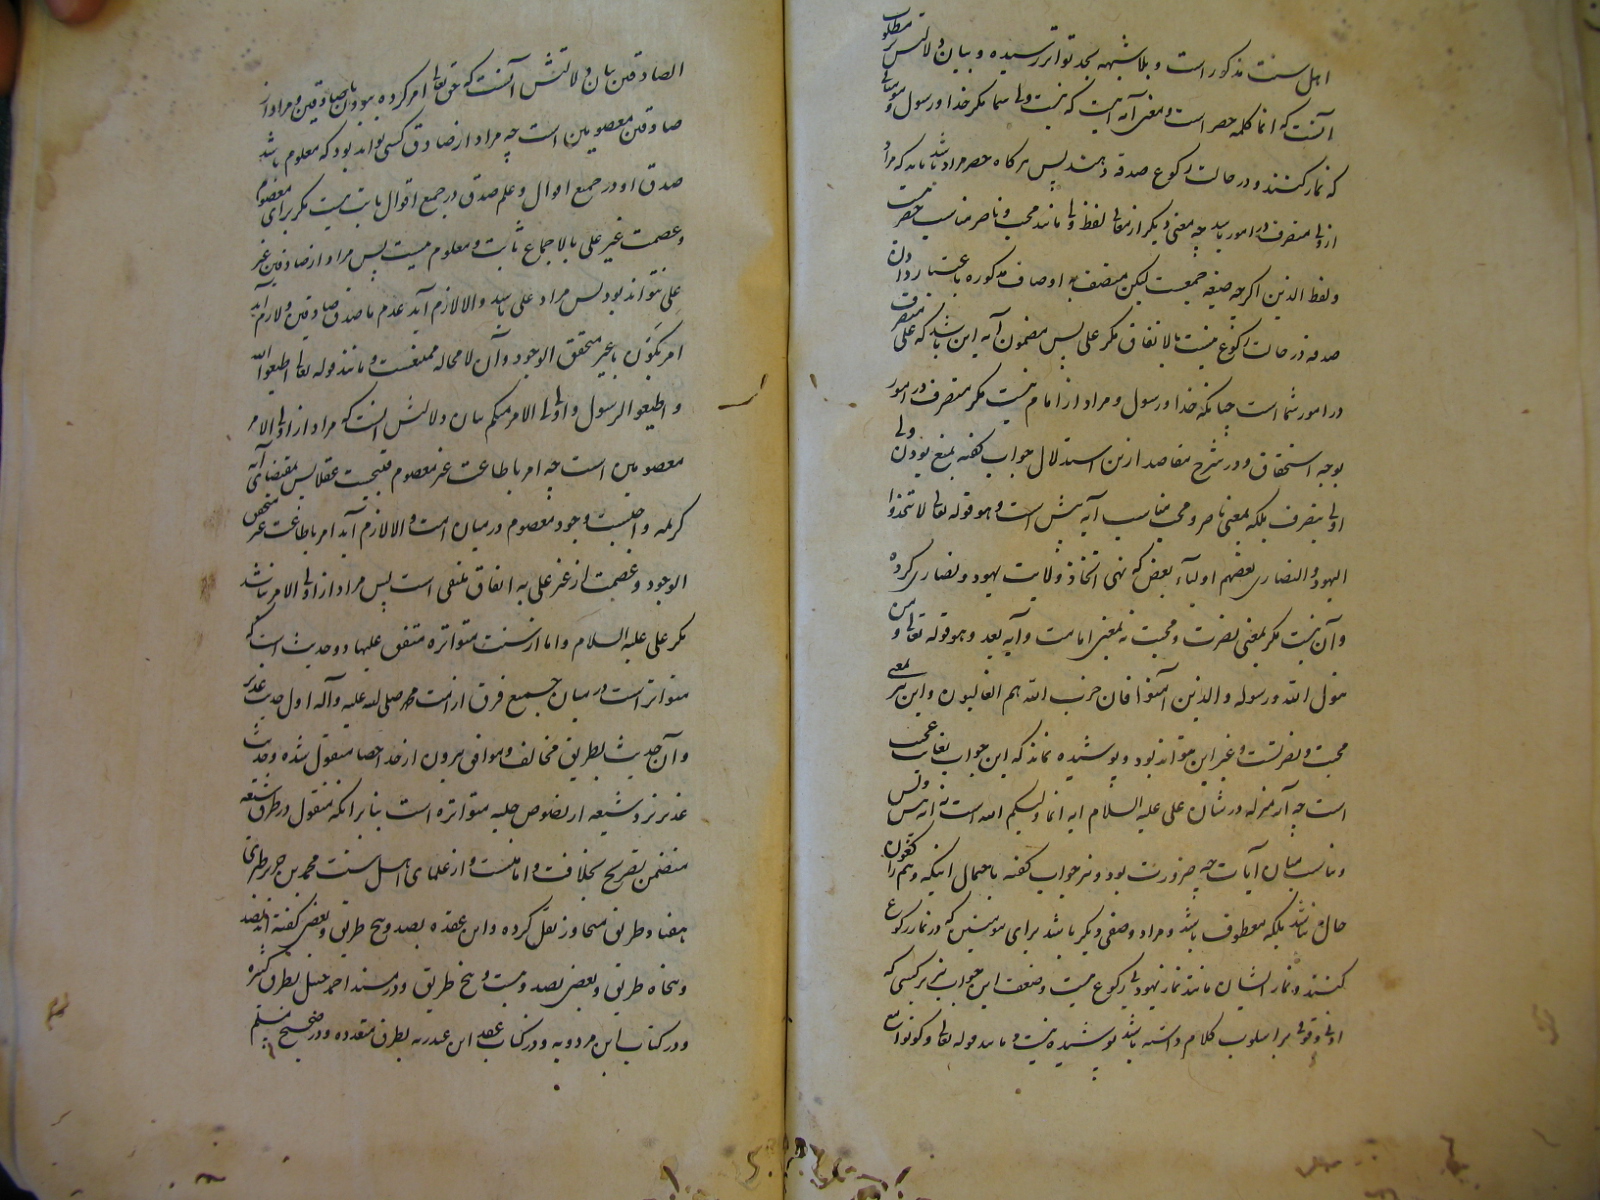 اهل سنت مذکور است و بلا شبهه بحد تواتر رسیده و بیان دلالتش بر مطلوب
آنست که انما کلمه حصر است و معنی آیه اینست که نیست ولی شما مگر خدا و رسول و مؤمنانی
که نماز کنند و در حالت رکوع صدقه دهند پس هرگاه حصر مراد باشد باید که مراد
از ولی متصرف در امور باشد چه معنی دیگر از معانی لفظ ولی مانند محب و ناصر مناسب حصر نیست
و لفظ الذین اگرچه صیغه جمعست لیکن متصف به اوصاف مذکوره باعتبار دادن
صدقه در حالت رکوع نیست بالاتفاق مگر علی پس مضمون آیه این باشد که علی متصرف
در امور شما است چنانکه خدا و رسول و مراد از امام نیست مگر متصرف در امور
بوجه استحقاق و در شرح مقاصد ازین استدلال جواب گفته بمنع بودن ولی
اولی بتصرف بلکه بمعنی ناصر و محب مناسب آیه پیش است و هو قوله تعالی لا تتخذوا
الیهود و النصاری بعضهم اولیاء بعض که نهی اتخاذ ولایت یهود و نصاری کرده
و آن نیست مگر بمعنی نصرت و محبت نه بمعنی امامت و آیه بعد و هو قوله تعالی و من
یتول الله و رسوله و الذین آمنوا فان حزب الله هم الغالبون و این نیز بمعنی
محبت و نصرتست و غیر این نتواند بود و پوشیده نماند که این جواب بغایت عجب
است چه آن منزله در شان علی علیه السلام آیه انما ولیکم الله است نه آیه پیش و پس
و مناسب میان آیات چه ضرورت بود و نیز جواب گفته باحتمال اینکه و هم راکعون
حال نباشد بلکه معطوف باشد و مراد وصفی دیگر باشد برای مؤمنین که در نماز رکوع
کنند و نماز ایشان مانند نماز یهود بی رکوع نیست و ضعف این جواب نیز بر کسی که
ادنی وقوفی بر اسلوب کلام داشته باشد پوشیده نیست و مانند قوله تعالی و کونوا مع
الصادقین بیان دلالتش آنست که حق تعالی امر کرده ببودن با صادقین و مراد از
صادقین معصومین است چه مراد از صادق کسی تواند بود که معلوم باشد
صدق او در جمیع اقوال و علم صدق در جمیع اقوال ثابت نیست مگر برای معصوم
و عصمت غیر علی بالاجماع ثابت و معلوم نیست پس مراد از صادقین غیر
علی نتواند بود پس مراد علی باشد و الا لازم آید عدم ما صدق صادقین و لازم آید
امر بکون با غیر متحقق الوجود و آن لا محاله ممتنعست و مانند قوله تعالی اطیعوا الله
و اطیعوا الرسول و اولی الامر منکم بیان دلالتش آنست که مراد از اولی الامر
معصومین است چه امر باطاعت غیر معصوم قبیحست عقلا پس بمقتضای آیه
کریمه واجبست وجود معصوم در میان امت و الا لازم آید امر باطاعت غیر متحقق
الوجود و عصمت از غیر علی به اتفاق منتفی است پس مراد از اولی الامر نباشد
مگر علی علیه السلام و اما از سنت متواتره متفق علیها دو حدیث است که
متواتر است در میان جمیع فرق از امت محمد صلی الله علیه و آله اول حدیث غدیر
و آن حدیث بطریق مخالف و موافق بیرون از حد احصا منقول شده و حدیث
غدیر نزد شیعه از نصوص جلیه متواتره است بنا بر آنکه منقول در طرق شیعه
متضمن تصریح بخلافت و امامتست و از علمای اهل سنت محمد بن جریر طبری
بهفتاد طریق متجاوز نقل کرده و ابن عقده بصد و پنج طریق و بعضی گفته اند بصد
و پنجاه طریق و بعضی بصد و بیست و پنج طریق و در مسند احمد حنبل بطرق کثیره
و در کتاب ابن مردویه و در کتاب عقد ابن عبدربه بطرق متعدده و در صحیح مسلم